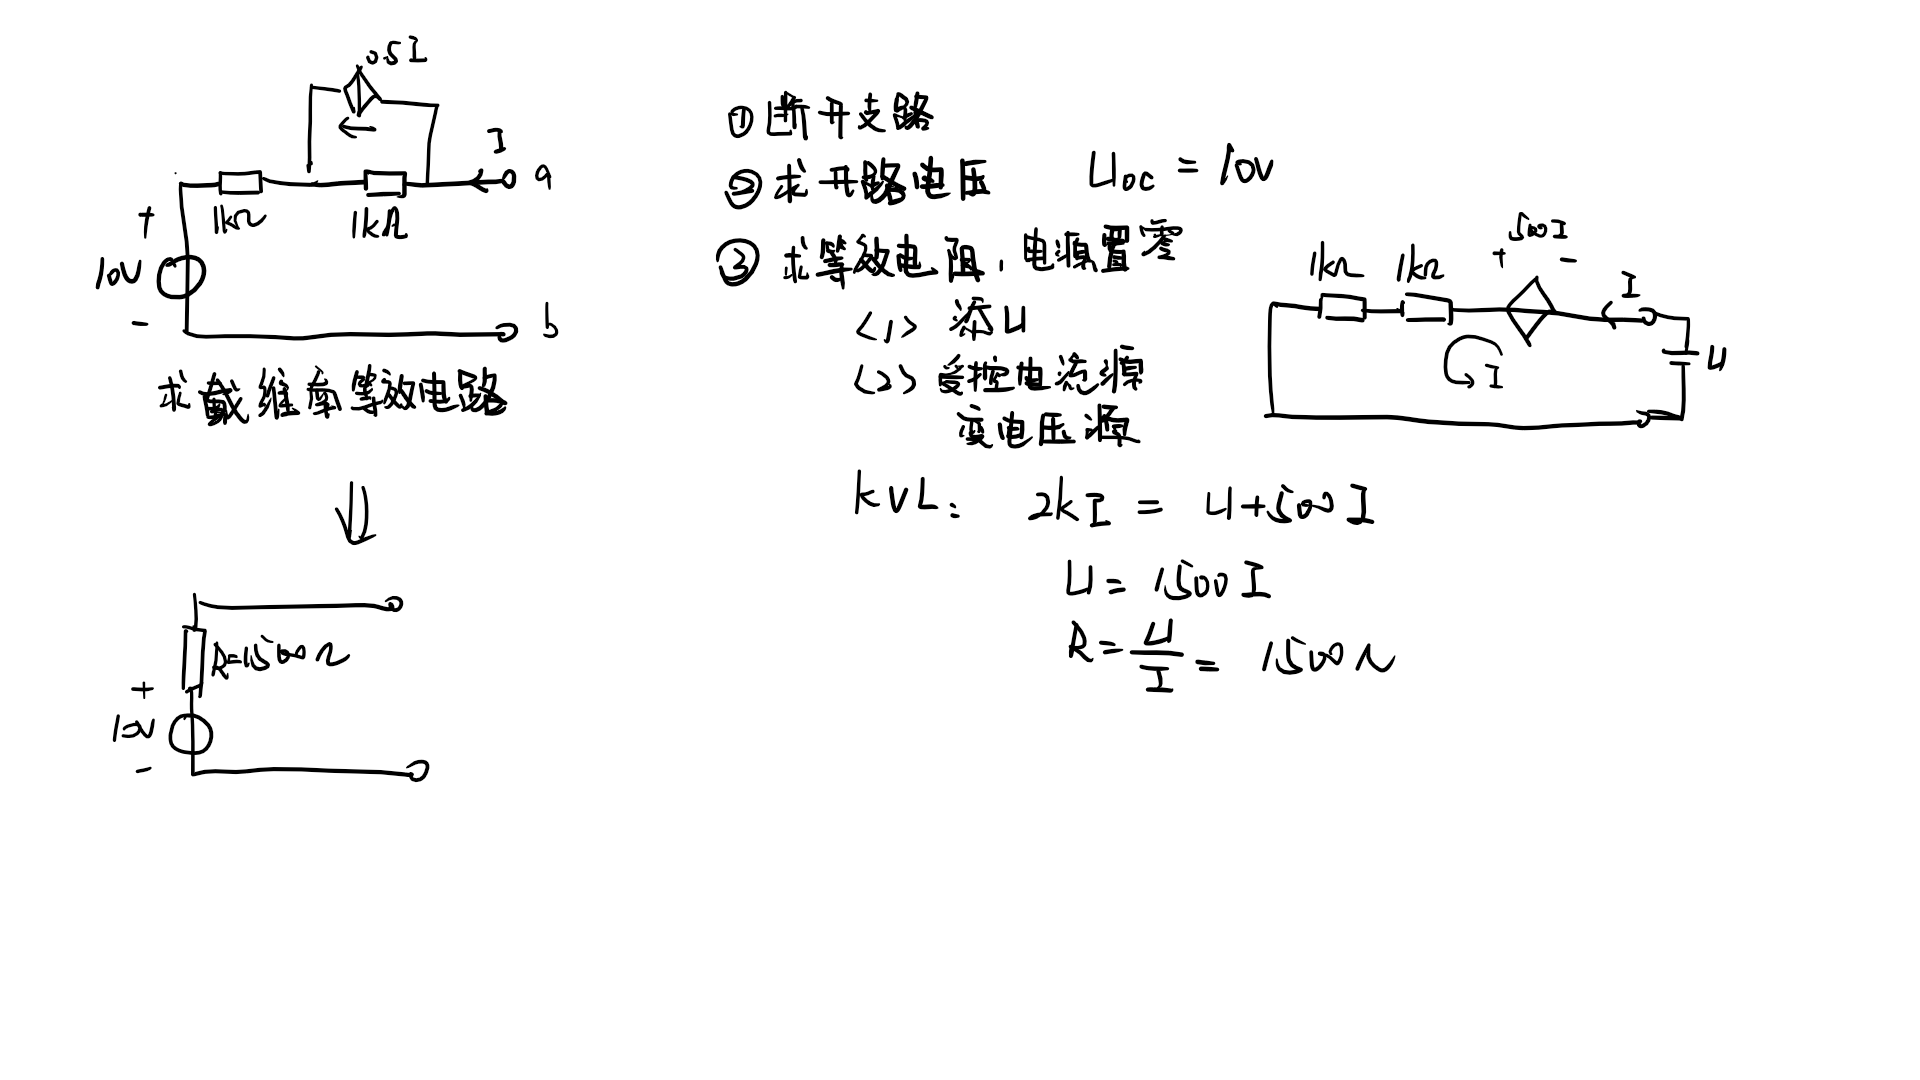 0.5I
I
a
1kΩ
1kΩ
+
10V
-
b
求戴维南等效电路
R=1500Ω
+
10V
-
① 断开支路
② 求开路电压 U_oc = 10V
③ 求等效电阻，电源置零
<1> 添U
<2> 受控电流源
变电压源
500I
+ -
1kΩ 1kΩ
I
U
I
KVL: 2kI = U+500I
U = 1500I
R = U/I = 1500Ω